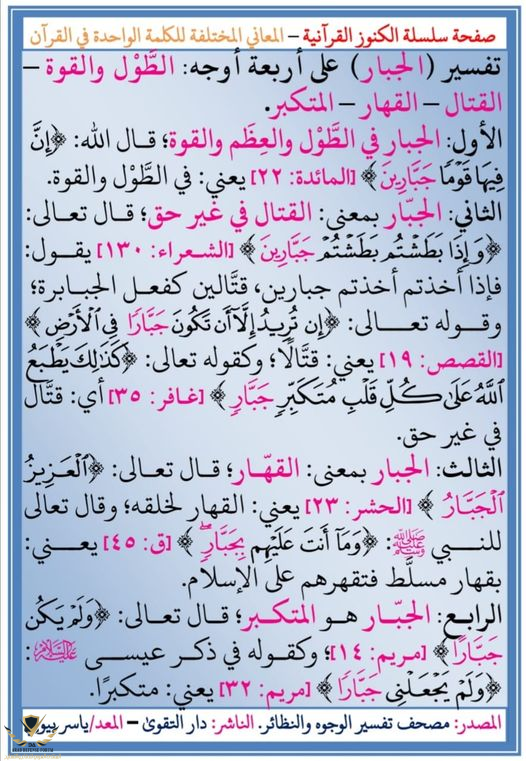 صفحة سلسلة الكنوز القرآنية – المعاني المختلفة للكلمة الواحدة في القرآن
تفسير (الجبار) على أربعة أوجه: الطَّوْل والقوة –
القتال – القهار – المتكبر.
الأول: الجبار في الطَّوْل والعِظَم والقوة؛ قال الله: ﴿إِنَّ
فِيهَا قَوْمًا جَبَّارِينَ﴾ [المائدة: ٢٢] يعني: في الطَّوْل والقوة.
الثاني: الجبّار بمعنى: القتال في غير حق؛ قال تعالى:
﴿وَإِذَا بَطَشْتُم بَطَشْتُمْ جَبَّارِينَ﴾ [الشعراء: ١٣٠] يقول:
فإذا أخذتم أخذتم جبارين، قتَّالين كفعل الجبابرة؛
وقوله تعالى: ﴿إِن تُرِيدُ إِلَّا أَن تَكُونَ جَبَّارًا فِي الْأَرْضِ﴾
[القصص: ١٩] يعني: قتالًا؛ وكقوله تعالى: ﴿كَذَٰلِكَ يَطْبَعُ
اللَّهُ عَلَىٰ كُلِّ قَلْبِ مُتَكَبِّرٍ جَبَّارٍ﴾ [غافر: ٣٥] أي: قتَّال
في غير حق.
الثالث: الجبار بمعنى: القهّار؛ قال تعالى: ﴿الْعَزِيزُ
الْجَبَّارُ﴾ [الحشر: ٢٣] يعني: القهار لخلقه؛ وقال تعالى
للنبي ﷺ: ﴿وَمَا أَنتَ عَلَيْهِم بِجَبَّارٍ ۖ﴾ [ق: ٤٥] يعني:
بقهار مسلَّط فتقهرهم على الإسلام.
الرابع: الجبّار هو المتكبر؛ قال تعالى: ﴿وَلَمْ يَكُن
جَبَّارًا﴾ [مريم: ١٤]؛ وكقوله في ذكر عيسى عليه السلام:
﴿وَلَمْ يَجْعَلْنِي جَبَّارًا﴾ [مريم: ٣٢] يعني: متكبرًا.
المصدر: مصحف تفسير الوجوه والنظائر. الناشر: دار التقوىٰ – المعد/ياسر بيو